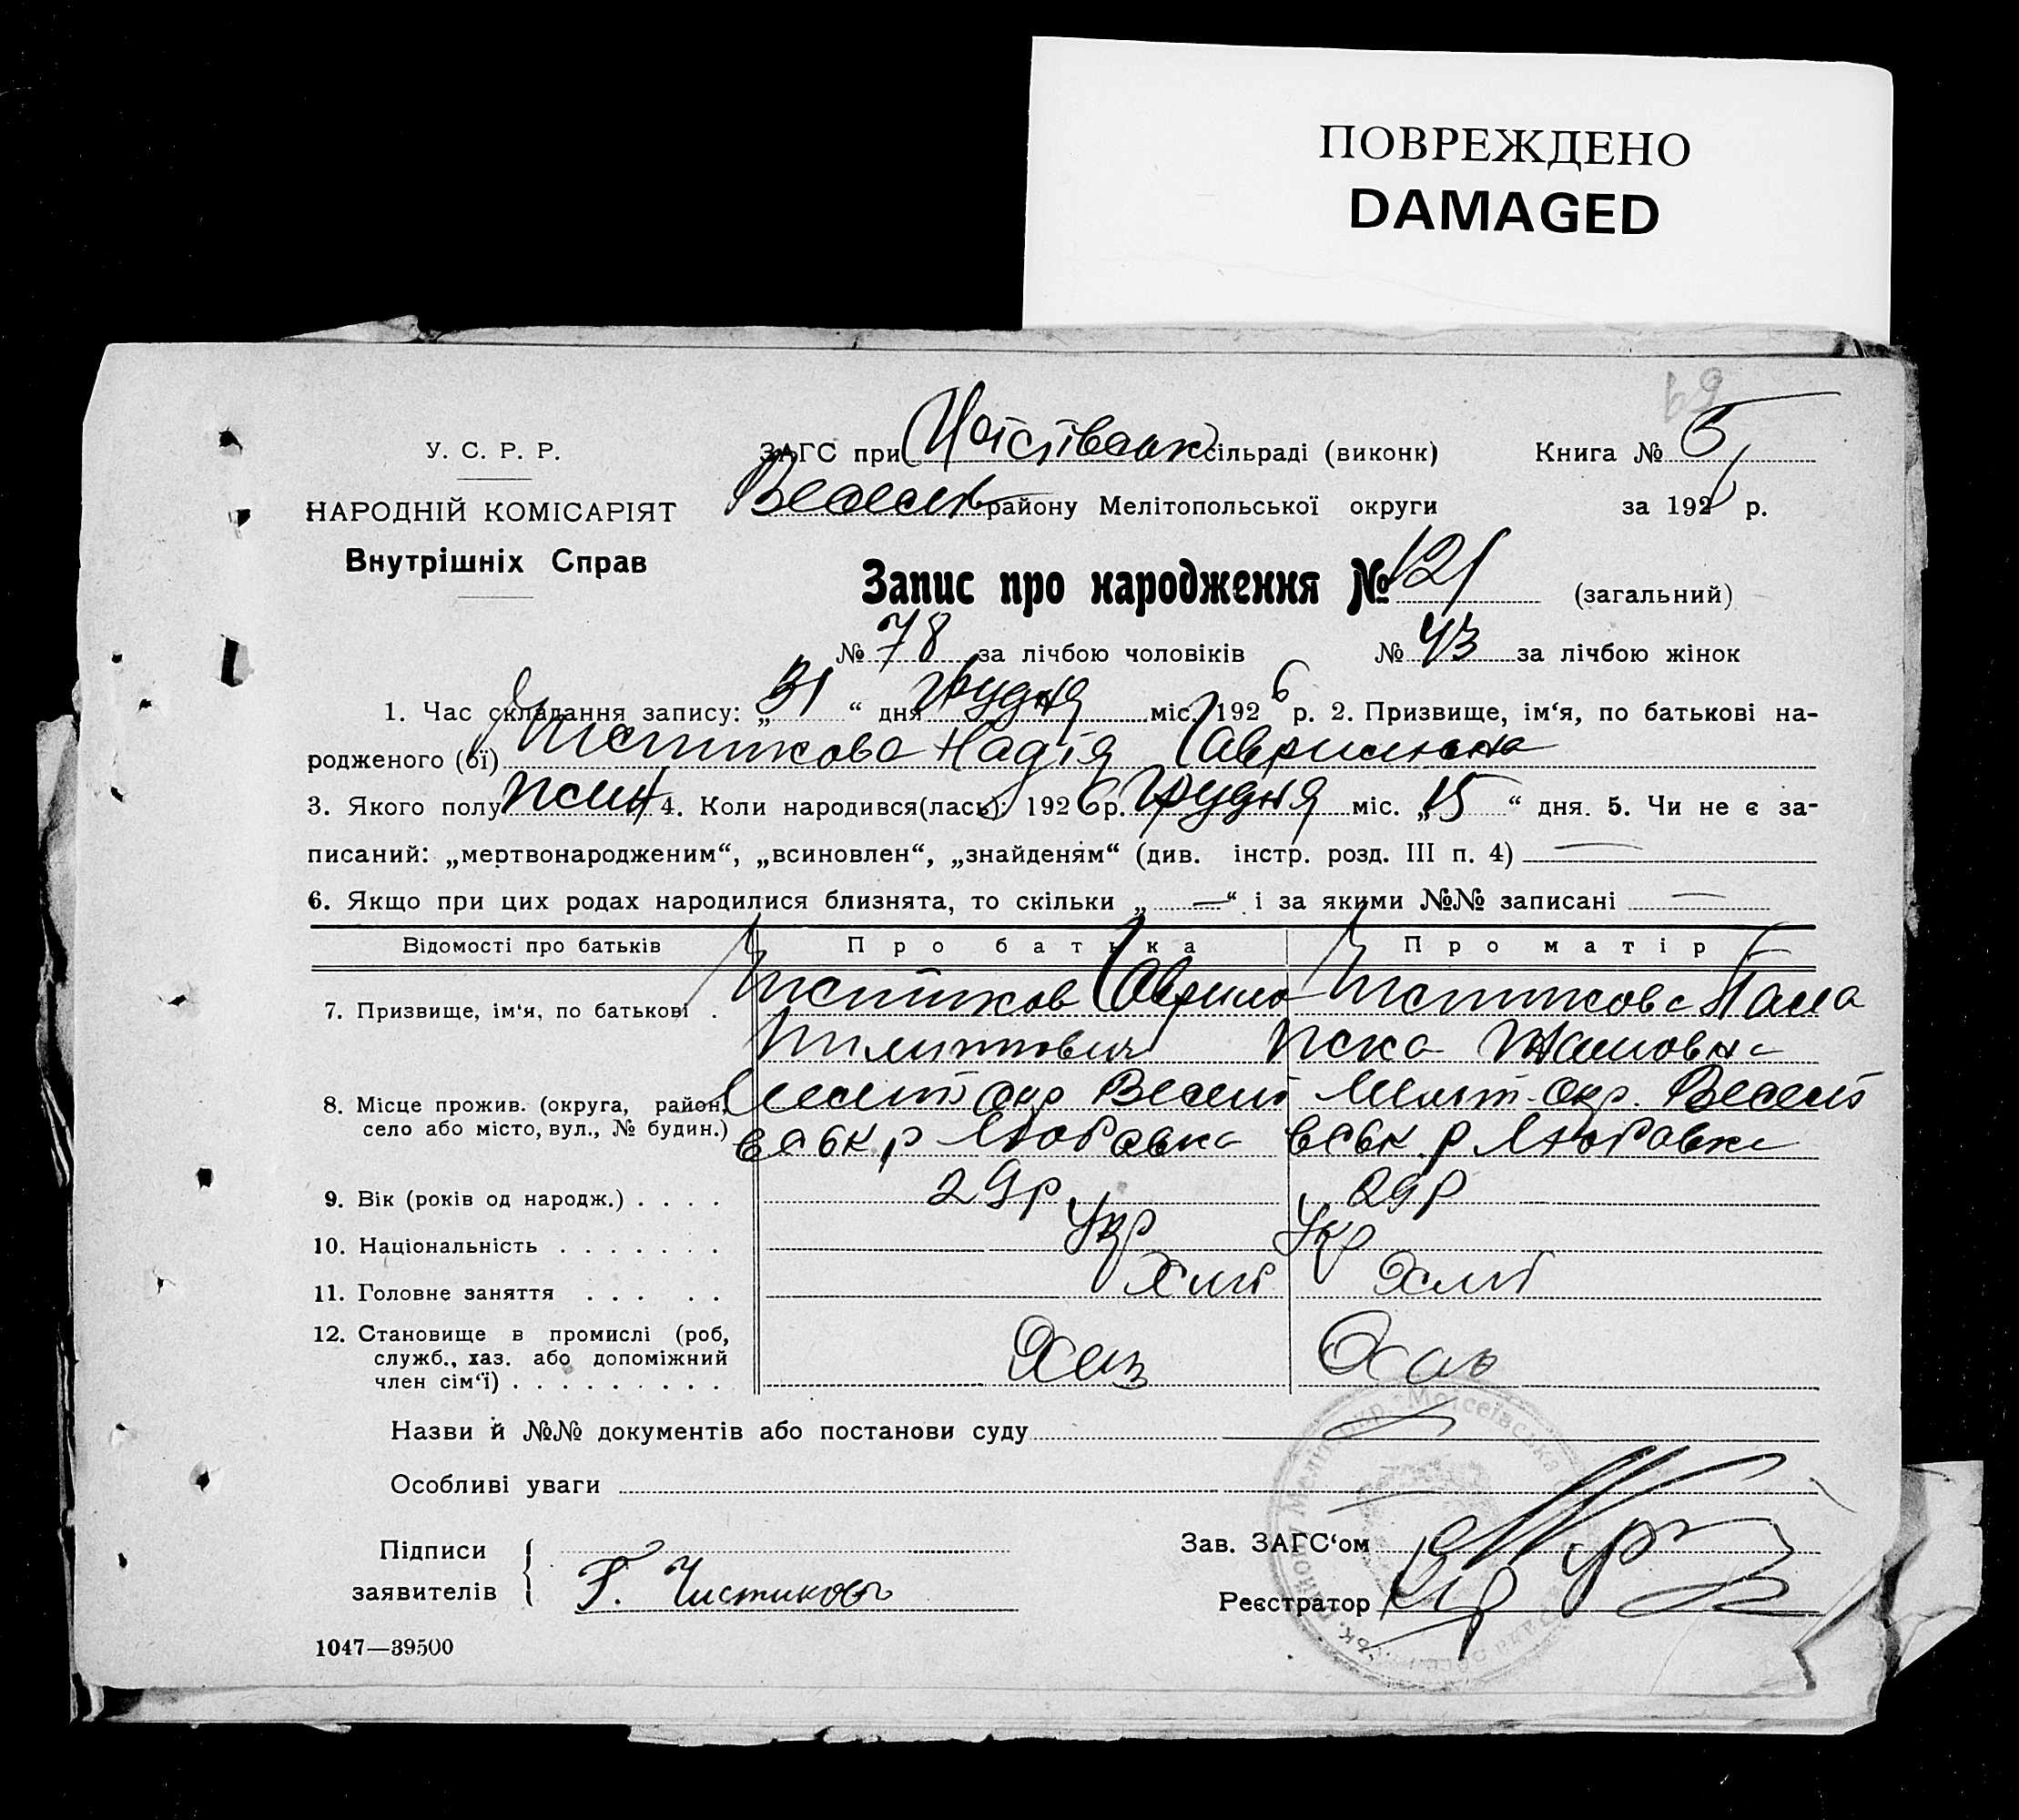 ПОВРЕЖДЕНО
DAMAGED
69
У. С. Р. Р.
НАРОДНІЙ КОМІСАРІЯТ
Внутрішніх Справ
ЗАГС при сільраді (виконк) Книга № 5
Весел района Мелітопольської округи за 192 р.
Запис про народження № 121 (загальний)
№ 78 за лічбою чоловіків № 43 за лічбою жінок
1. Час складання запису: „31“ дня Грудня міс. 1926 р. 2. Призвище, ім‘я, по батькові на-
родженого (ої) Чистикова Надія Гаврилівна
3. Якого полу жін 4. Коли народився(лась): 1926 р. Грудня міс. „15“ дня. 5. Чи не є за-
писаний: „мертвонародженим“, „всиновлен“, „знайденям“ (див. інстр. розд. III п. 4) —
6. Якщо при цих родах народилися близнята, то скільки „—“ і за якими №№ записані —
Відомості про батьків Про батька Про матір
7. Призвище, ім‘я, по батькові . Чистиков Гаврило Чистикова
Пилипович
8. Місце прожив. (округа, район, Меліт окр Весел Меліт. окр. Весел
село або місто, вул., № будин.) р Любавка р Любавка
9. Вік (років од народж.) . . . . 29 р 29 р
10. Національність . . . . . . . Укр Укр
11. Головне заняття . . . . . Хліб Хліб
12. Становище в промислі (роб,
служб., хаз. або допоміжний
член сім‘ї) . . . . . . . . . Хаз
Назви й №№ документів або постанови суду
Особливі уваги
Підписи
заявителів Г. Чистиковъ
Зав. ЗАГС‘ом
Реєстратор
1047—39500